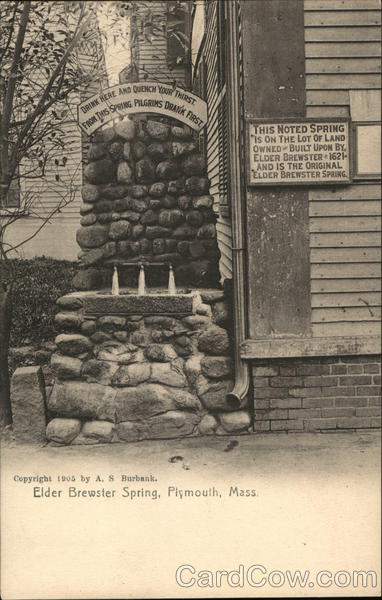 DRINK HERE AND QUENCH YOUR THIRST.
FROM THIS SPRING PILGRIMS DRANK FIRST
THIS NOTED SPRING
IS ON THE LOT OF LAND
OWNED AND BUILT UPON BY,
ELDER BREWSTER IN 1621
AND IS THE ORIGINAL
ELDER BREWSTER SPRING.
Copyright 1905 by A. S Burbank.
Elder Brewster Spring, Plymouth, Mass.
CardCow.com